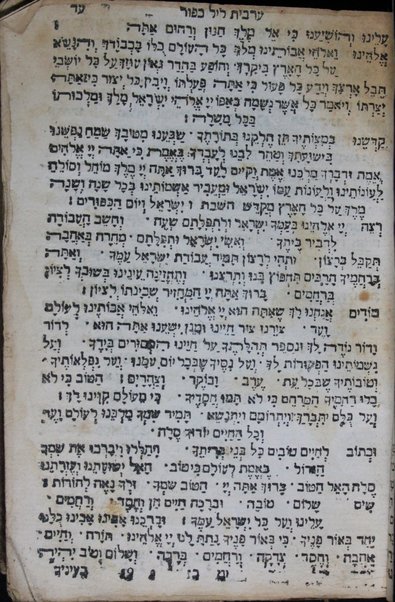 ערבית ליל כפור עד
עלינו והושיענו כי אל מלך חנון ורחום אתה :
אלהינו ואלהי אבותינו מלוך על כל העולם כלו בכבודך והנשא
על כל הארץ ביקרך והופע בהדר גאון עוזך על כל יושבי
תבל ארצך וידע כל פעול כי אתה פעלתו ויבין כל יצור כי אתה
יצרתו ויאמר כל אשר נשמה באפו יי אלהי ישראל מלך ומלכותו
בכל משלה :
קדשנו במצותיך תן חלקנו בתורתך שבענו מטובך שמח נפשנו
בישועתך וטהר לבנו לעבדך באמת כי אתה יי אלהים
אמת ודברך מלכנו אמת וקיים לעד ברוך אתה יי מלך מוחל וסולח
לעונותינו ולעונות עמו ישראל ומעביר אשמותינו בכל שנה ושנה
מלך על כל הארץ מקדש השבת ו ישראל ויום הכפורים :
רצה יי אלהינו בעמך ישראל ולתפלתם שעה והשב העבודה
לדביר ביתך ואשי ישראל ותפלתם מהרה באהבה
תקבל ברצון ותהי לרצון תמיד עבודת ישראל עמך ואתה
ברחמיך הרבים תחפוץ בנו ותרצנו ותחזינה עינינו בשובך לציון
ברחמים ברוך אתה יי המחזיר שכינתו לציון :
מודים אנחנו לך שאתה הוא יי אלהינו ואלהי אבותינו לעולם
ועד צורנו צור חיינו ומגן ישענו אתה הוא לדור
ודור נודה לך ונספר תהלתך על חיינו המסורים בידך ועל
נשמותינו הפקודות לך ועל נסיך שבכל יום עמנו ועל נפלאותיך
וטובותיך שבכל עת ערב ובוקר וצהרים הטוב כי לא
כלו רחמיך המרחם כי לא תמו חסדיך כי מעולם קוינו לך :
ועל כלם יתברך ויתרומם ויתנשא תמיד שמך מלכנו לעולם ועד
וכל החיים יודוך סלה
וכתוב לחיים טובים כל בני בריתך ויהללו ויברכו את שמך
הגדול באמת לעולם כי טוב האל ישועתנו ועזרתנו
סלה האל הטוב ברוך אתה יי הטוב שמך ולך נאה להודות :
שים שלום טובה וברכה חיים חן וחסד ורחמים
עלינו ועל כל ישראל עמך וברכנו אבינו כלנו
יחד באור פניך כי באור פניך נתת לנו יי אלהינו תורה וחיים
אהבה וחסד צדקה ורחמים ברכה ושלום וטוב יהיה
19 בעיניך